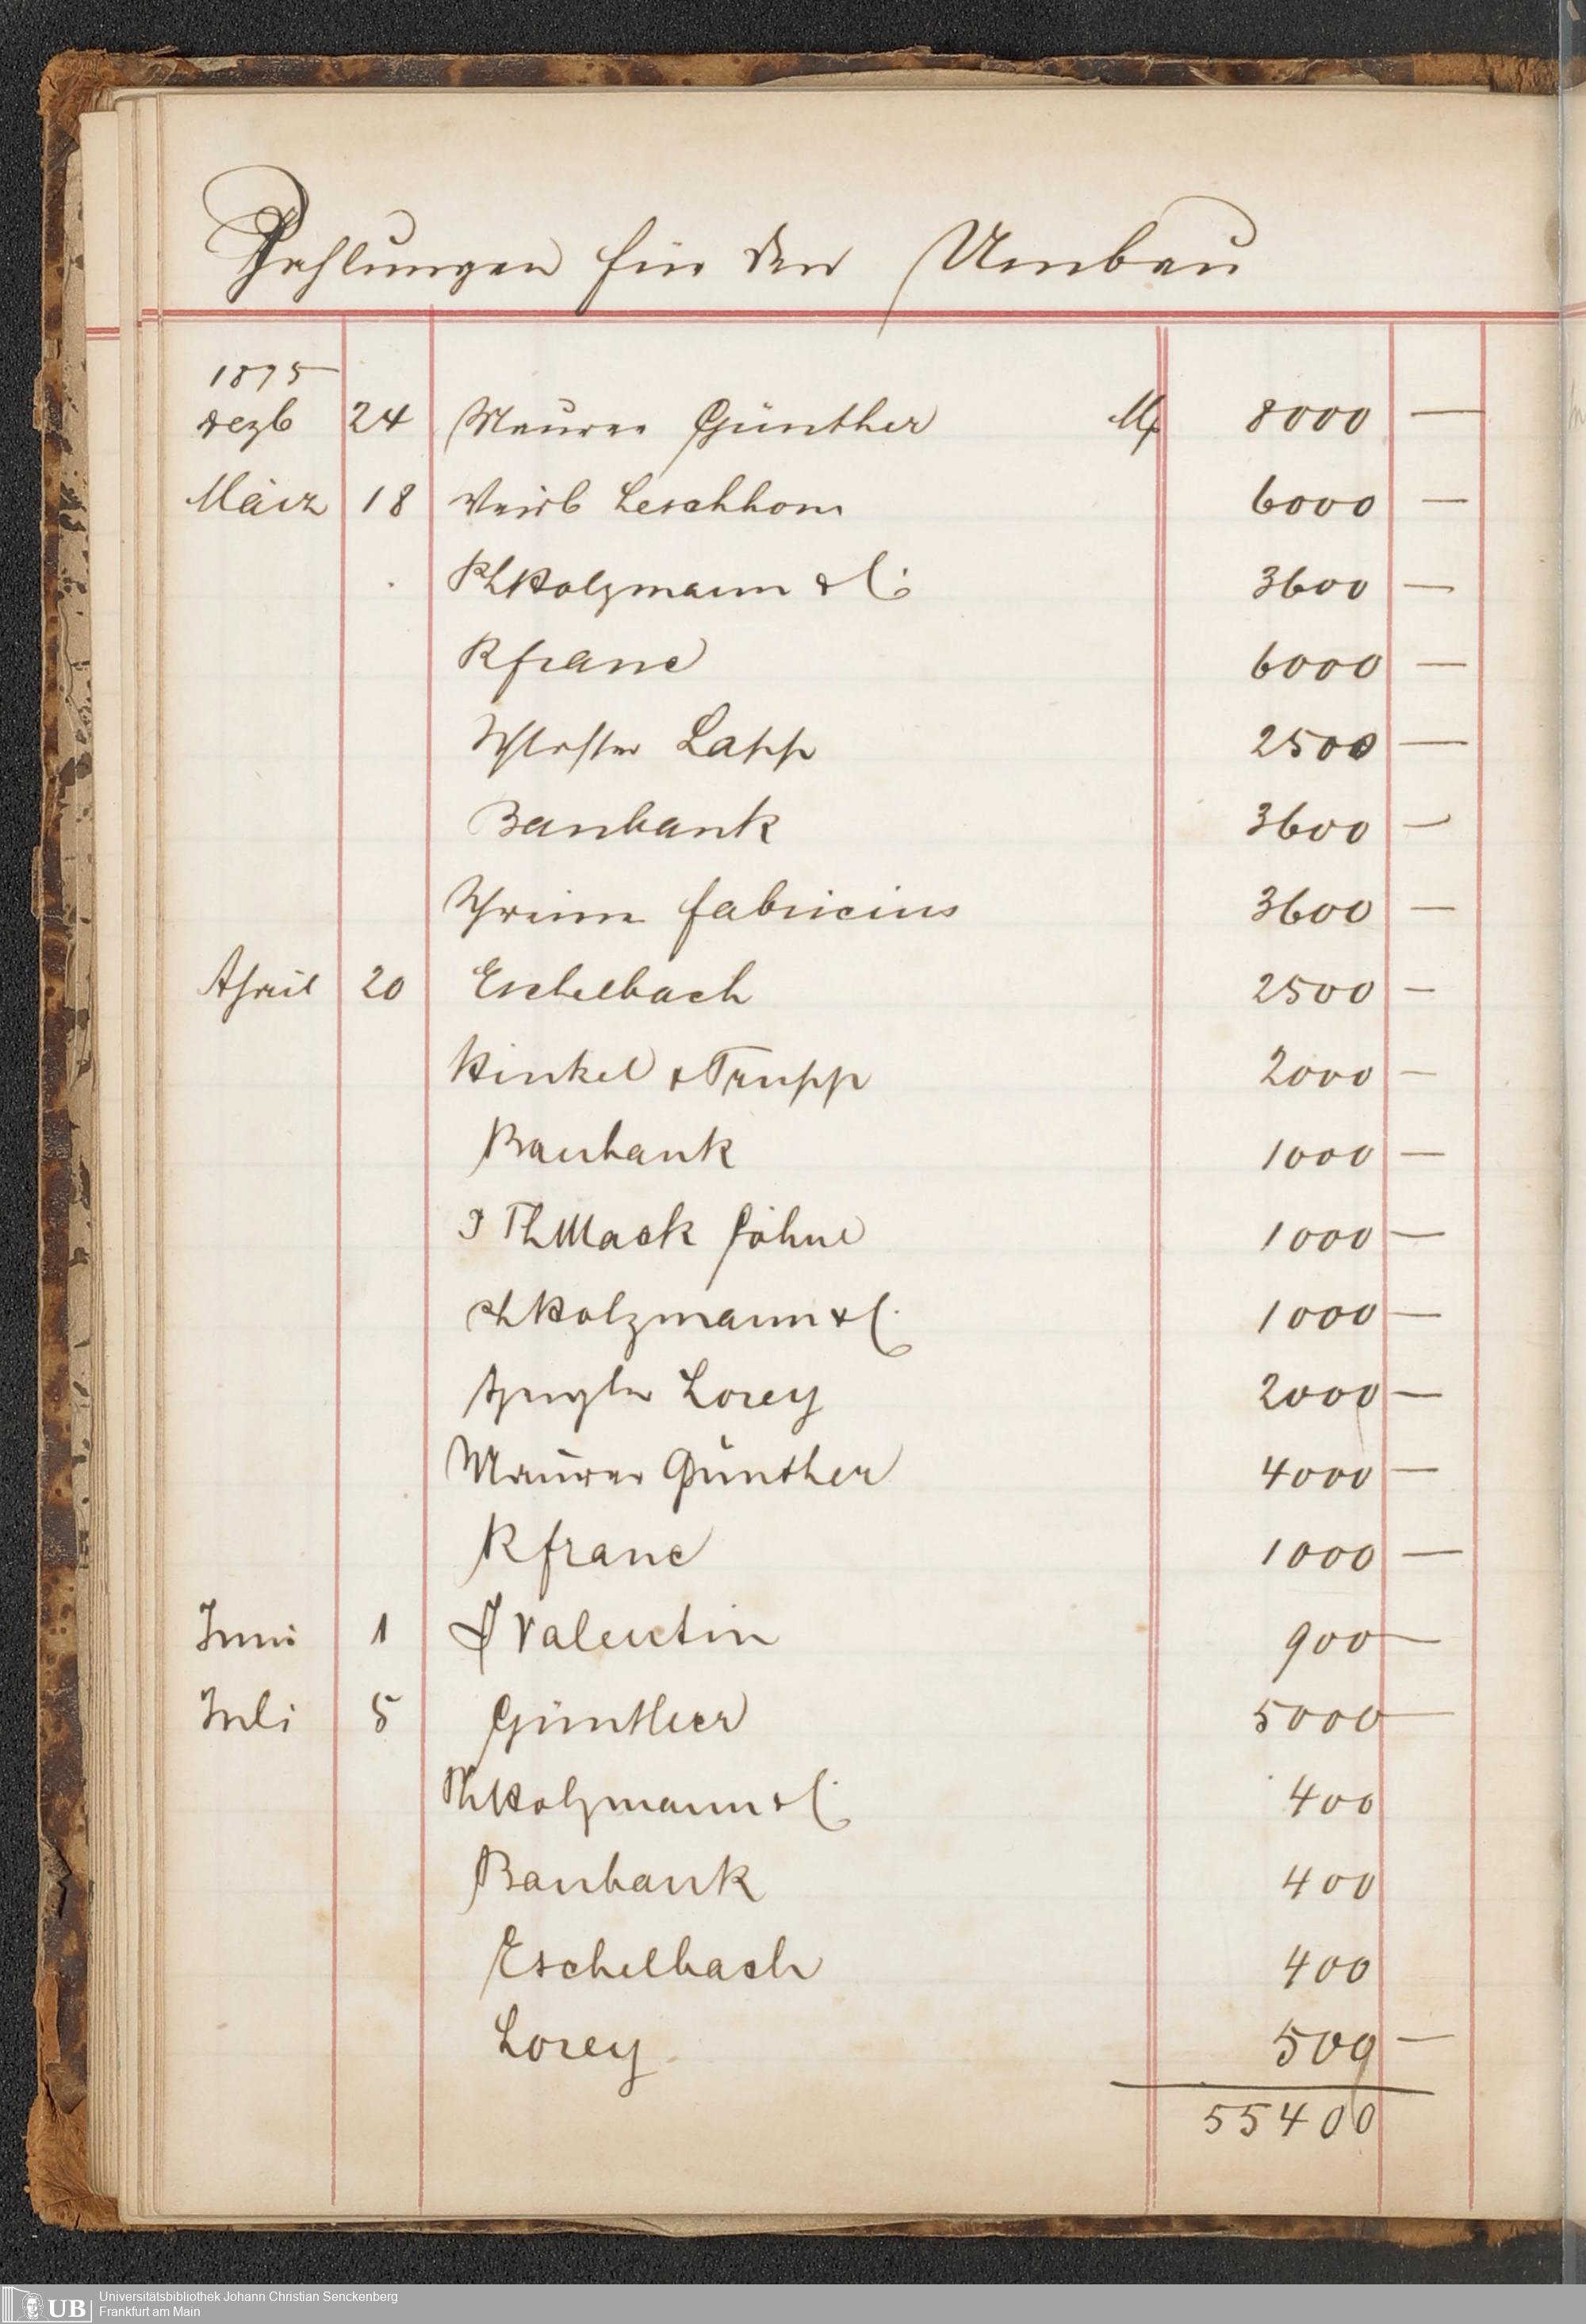 Zahlungen für den Umbau
1875
Dezb 24 Maurer Günther M 8000 —
März 18 Leschhorn 6000 —
Ph Holzmann & C: 3600 —
R franc 6000 —
Schlosser Lapp 2500 —
Baubank 3600 —
Schreiner fabricius 3600 —
April 20 Eschelbach 2500 —
Hinkel & Trupp 2000 —
Baubank 1000 —
J Th Mack Söhne 1000 —
Ph Holzmann & C. 1000 —
Spengler Lorey 2000 —
Maurer Günther 4000 —
R franc 1000 —
Juni 1 J Valentin 900 —
Juli 5 Günther 5000 —
Ph Holzmann & C. 400
Baubank 400
Eschelbach 400
Lorey 500 —
55400
Universitätsbibliothek Johann Christian Senckenberg
Frankfurt am Main
UB